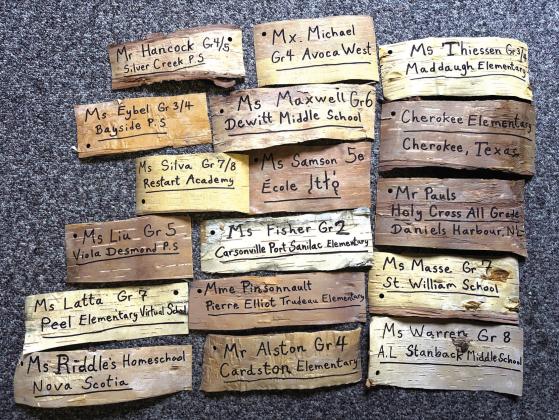 Mr Hancock Gr4/5
Silver Creek P.S
Mx. Michael
Gr4 Avoca West
Ms Thiessen Gr3/4
Maddaugh Elementary
Ms Eybel Gr 3/4
Bayside P.S
Ms Maxwell Gr6
Dewitt Middle School
Cherokee Elementary
Cherokee, Texas
Ms Silva Gr 7/8
Restart Academy
Ms Samson 5e
École
Mr Pauls
Holy Cross All Grade
Daniels Harbour, NL
Ms Liu Gr 5
Viola Desmond P.S
Ms Fisher Gr 2
Carsonville Port Sanilac Elementary
Ms Masse Gr 7
St. William School
Ms Latta Gr 7
Peel Elementary Virtual School
Mme Pinsonnault
Pierre Elliot Trudeau Elementary
Ms Warren Gr 8
A.L Stanback Middle School
Ms Riddle's Homeschool
Nova Scotia
Mr Alston Gr 4
Cardston Elementary